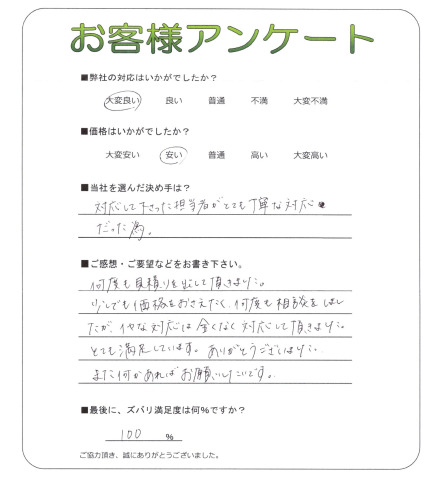 お客様アンケート
■弊社の対応はいかがでしたか？
大変良い 良い 普通 不満 大変不満
■価格はいかがでしたか？
大変安い 安い 普通 高い 大変高い
■当社を選んだ決め手は？
対応して下さった担当者がとても丁寧な対応
だった為。
■ご感想・ご要望などをお書き下さい。
何度も見積りを出して頂きました。
少しでも価格をおさえたく、何度も相談をしまし
たが、イヤな対応は全くなく対応して頂きました。
とても満足しています。ありがとうございました。
また何かあればお願いしたいです。
■最後に、ズバリ満足度は何%ですか？
100 %
ご協力頂き、誠にありがとうございました。